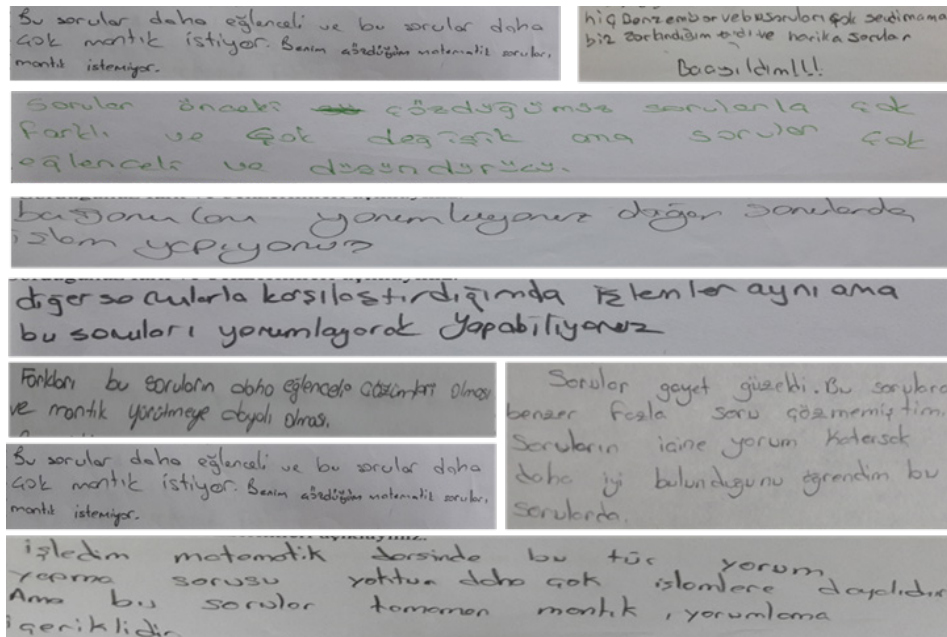 Bu sorular daha eğlenceli ve bu sorular daha
çok mantık istiyor. Benim çözdüğüm matematik soruları,
mantık istemiyor.
hiç benzemiyor ve bu soruları çok sevdim ama
biz zorlandığım oldu ve harika sorular
Bayıldım!!!
Sorular önceki çözdüğümüz sorularla çok
farklı ve çok değişik ama sorular çok
eğlenceli ve düşündürücü.
bu soruları yorumluyoruz diğer sorularda
işlem yapıyoruz
diğer sorularla karşılaştırdığımda işlemler aynı ama
bu soruları yorumlayarak yapabiliyoruz
Farkları bu soruların daha eğlenceli çözümleri olması
ve mantık yürütmeye dayalı olması.
Sorular gayet güzeldi. Bu sorulara
benzer fazla soru çözmemiştim.
Soruların içine yorum katarsak
daha iyi bulunduğunu öğrendim bu
sorularda.
Bu sorular daha eğlenceli ve bu sorular daha
çok mantık istiyor. Benim çözdüğüm matematik soruları,
mantık istemiyor.
işledim matematik dersinde bu tür yorum
yapma sorusu yoktur daha çok işlemlere dayalıdır
Ama bu sorular tamamen mantık, yorumlama
içeriklidir